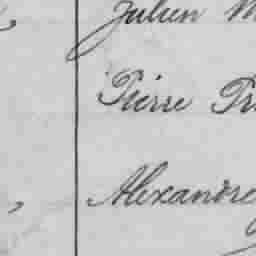 Julien
Pierre
Alexandre